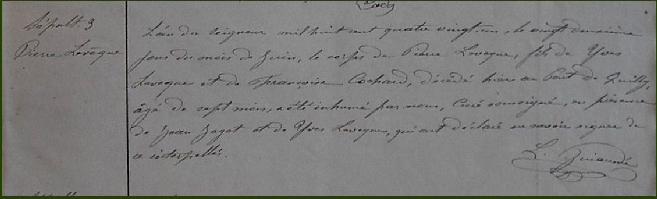 Sépult. 3
Pierre Levêque
L'an du Seigneur mil huit cent quatre vingt un, le vingt deuxième
jour du mois de Juin, le corps de Pierre Leveque, fils de Yves
Leveque et de Françoise décédé hier au Pont de
âgé de sept mois, a été inhumé par nous, Curé soussigné, en présence
de Jean Jagot et de Yves Leveque, qui ont déclaré ne savoir signer de
ce interpellés.